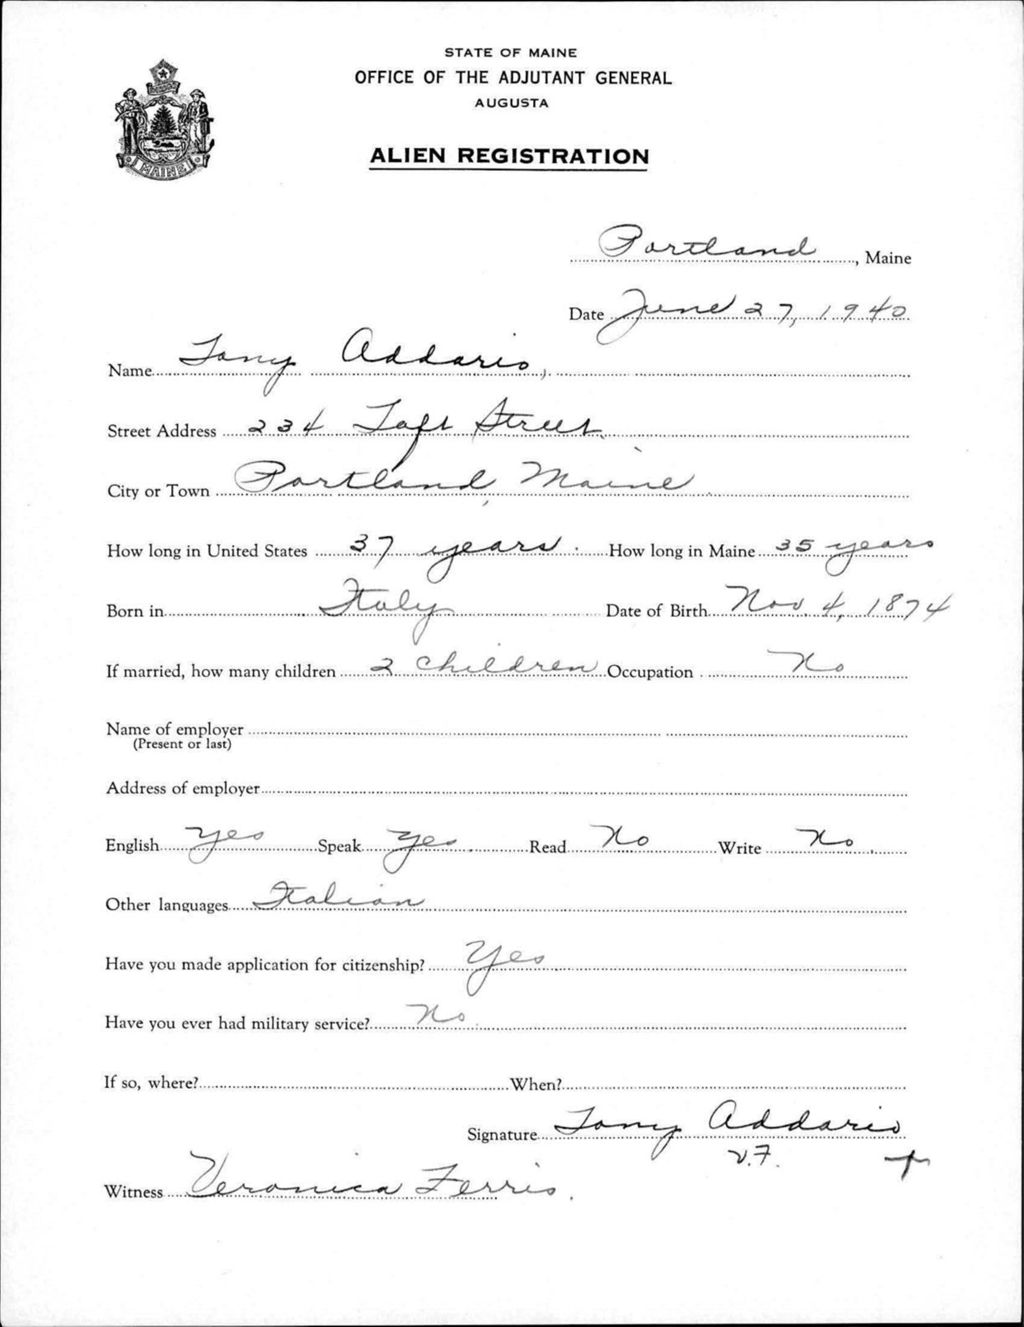 STATE OF MAINE
OFFICE OF THE ADJUTANT GENERAL
AUGUSTA
ALIEN REGISTRATION
MAINE
Portland, Maine
Date June 27, 1940
Name Tony Addario,
Street Address 234 Taft Street
City or Town Portland, Maine
How long in United States 37 years. How long in Maine 35 years
Born in Italy Date of Birth Nov 4, 1874
If married, how many children 2 children Occupation No
Name of employer
(Present or last)
Address of employer
English Yes Speak Yes Read No Write No
Other languages Italian
Have you made application for citizenship? Yes
Have you ever had military service? No
If so, where? When?
Signature Tony Addario
V.F. +
Witness Veronica Ferris.